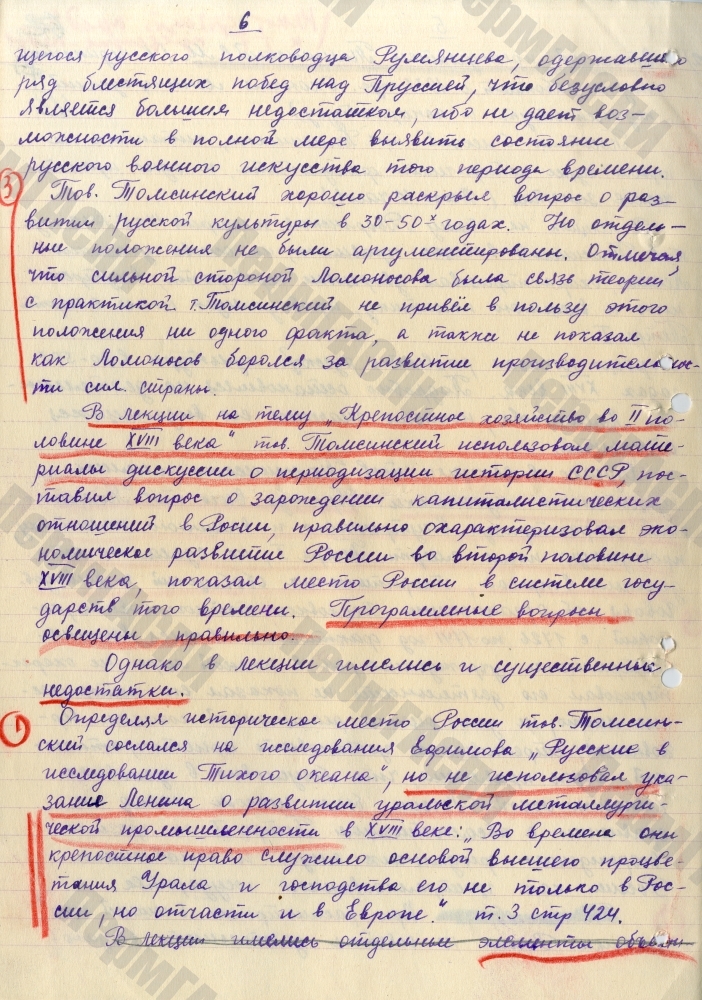 6
щегося русского полководца Румянцева, одержавшего
ряд блестящих побед над Пруссией, что безусловно
является большим недостатком, ибо не дает воз-
можности в полной мере выявить состояние
русского военного искусства того периода времени.
3
Тов. Томсинский хорошо раскрыл вопрос о раз-
витии русской культуры в 30-50х годах. Но отдель-
ные положения не были аргументированы. Отмечая,
что сильной стороной Ломоносова была связь теории
с практикой т. Томсинский не привёл в пользу этого
положения ни одного факта, а также не показал
как Ломоносов боролся за развитие производительнос-
ти сил страны.
В лекции на тему „Крепостное хозяйство во II по-
ловине XVIII века" тов. Томсинский использовал мате-
риалы дискуссии о периодизации истории СССР, пос-
тавил вопрос о зарождении капиталистических
отношений в Росии, правильно охарактеризовал эко-
номическое развитие России во второй половине
XVIII века, показал место России в системе госу-
дарств того времени. Программные вопросы
освещены правильно.
Однако в лекции имелись и существенные
недостатки.
1
Определяя историческое место России тов. Томсин-
ский сослался на исследования Ефимова „Русские в
исследовании Тихого океана", но не использовал ука-
зание Ленина о развитии уральской металлурги-
ческой промышленности в XVIII веке: „Во времена оны
крепостное право служило основой высшего процве-
тания Урала и господства его не только в Рос-
сии, но отчасти и в Европе." т. 3 стр 424.
В лекции имелись отдельные элементы объекти-
пермГАСПИ